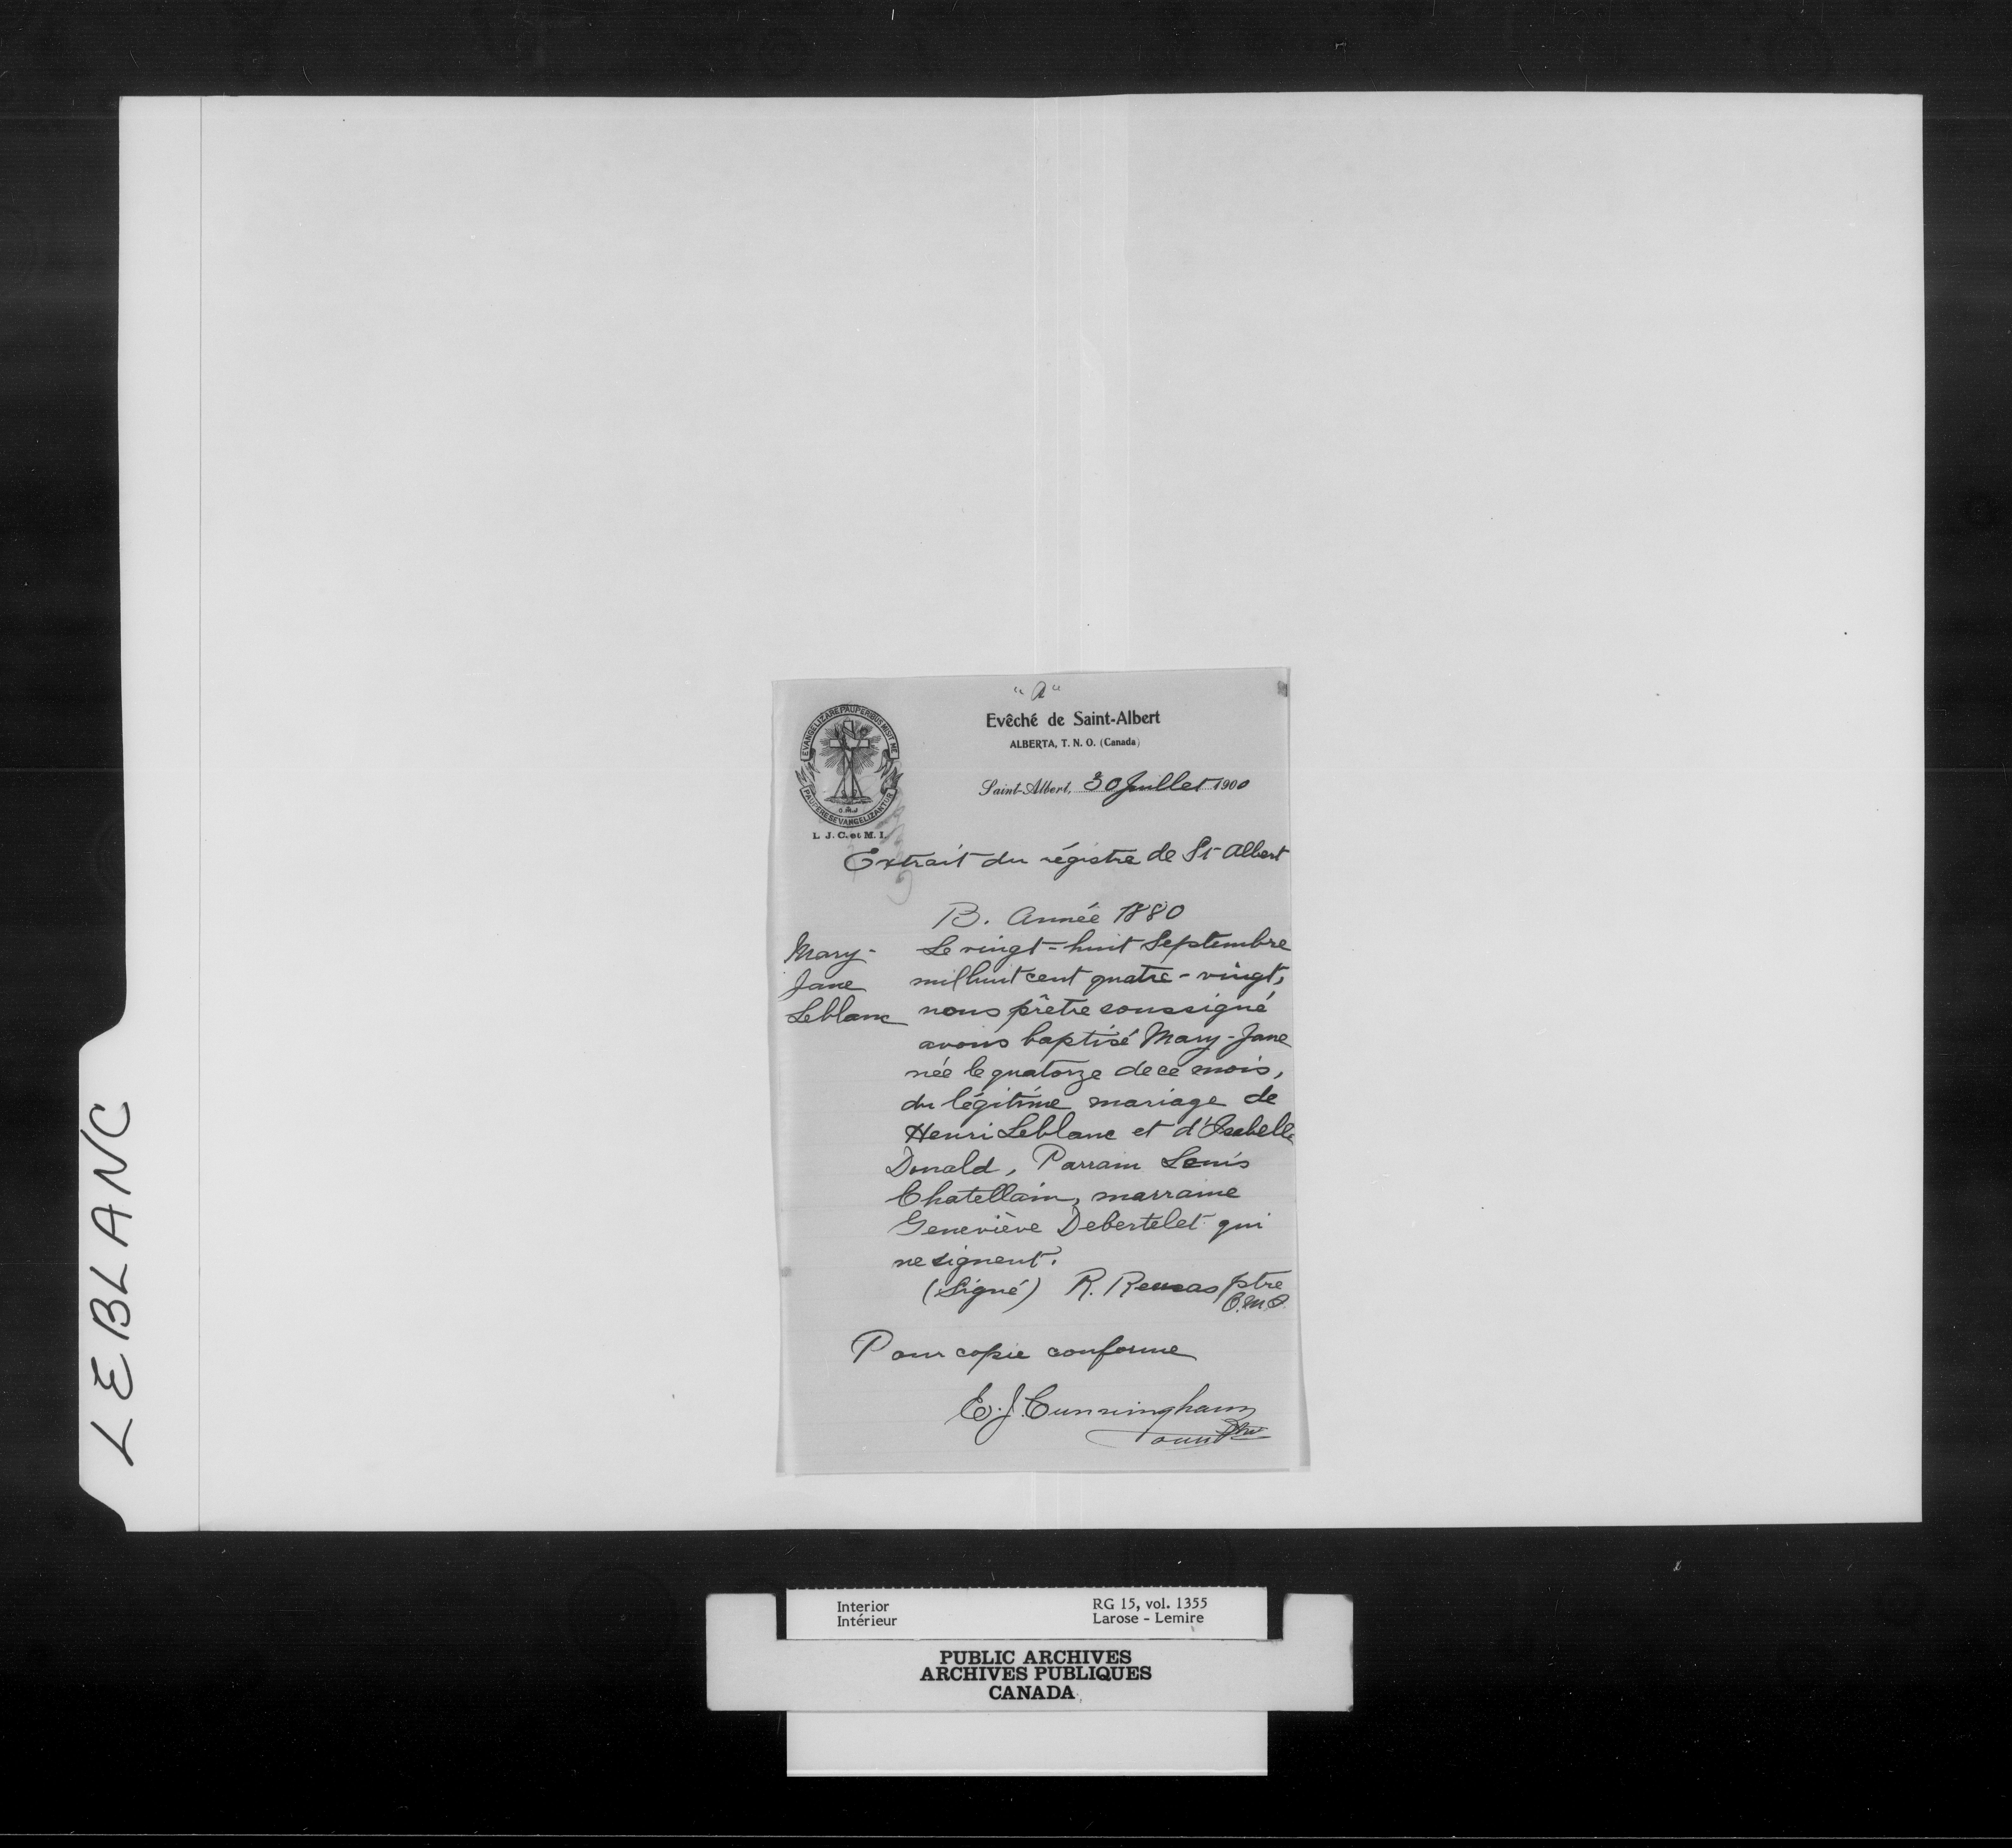 LEBLANC
"A"
EVANGELIZARE PAUPERIBUS MISIT ME
PAUPERES EVANGELIZANTUR
O.M.I
L. J. C. et M. I.
Evêché de Saint-Albert
ALBERTA, T. N. O. (Canada)
Saint-Albert, 30 Juillet 1900
Extrait du régistre de St Albert
B. Année 1880
Mary-
Jane
Leblanc
Le vingt-huit Septembre
mil huit cent quatre-vingt,
nous prêtre soussigné
avons baptisé Mary-Jane
née le quatorze de ce mois,
du légitime mariage de
Henri Leblanc et d'Isabelle
Donald, Parrain Louis
Chatellain, marraine
Geneviève Debertelet qui
ne signent.
(Signé) R. Remas ptre
O.M.I.
Pour copie conforme
E. J. Cunningham
omi Ptre
Interior
Intérieur
RG 15, vol. 1355
Larose - Lemire
PUBLIC ARCHIVES
ARCHIVES PUBLIQUES
CANADA